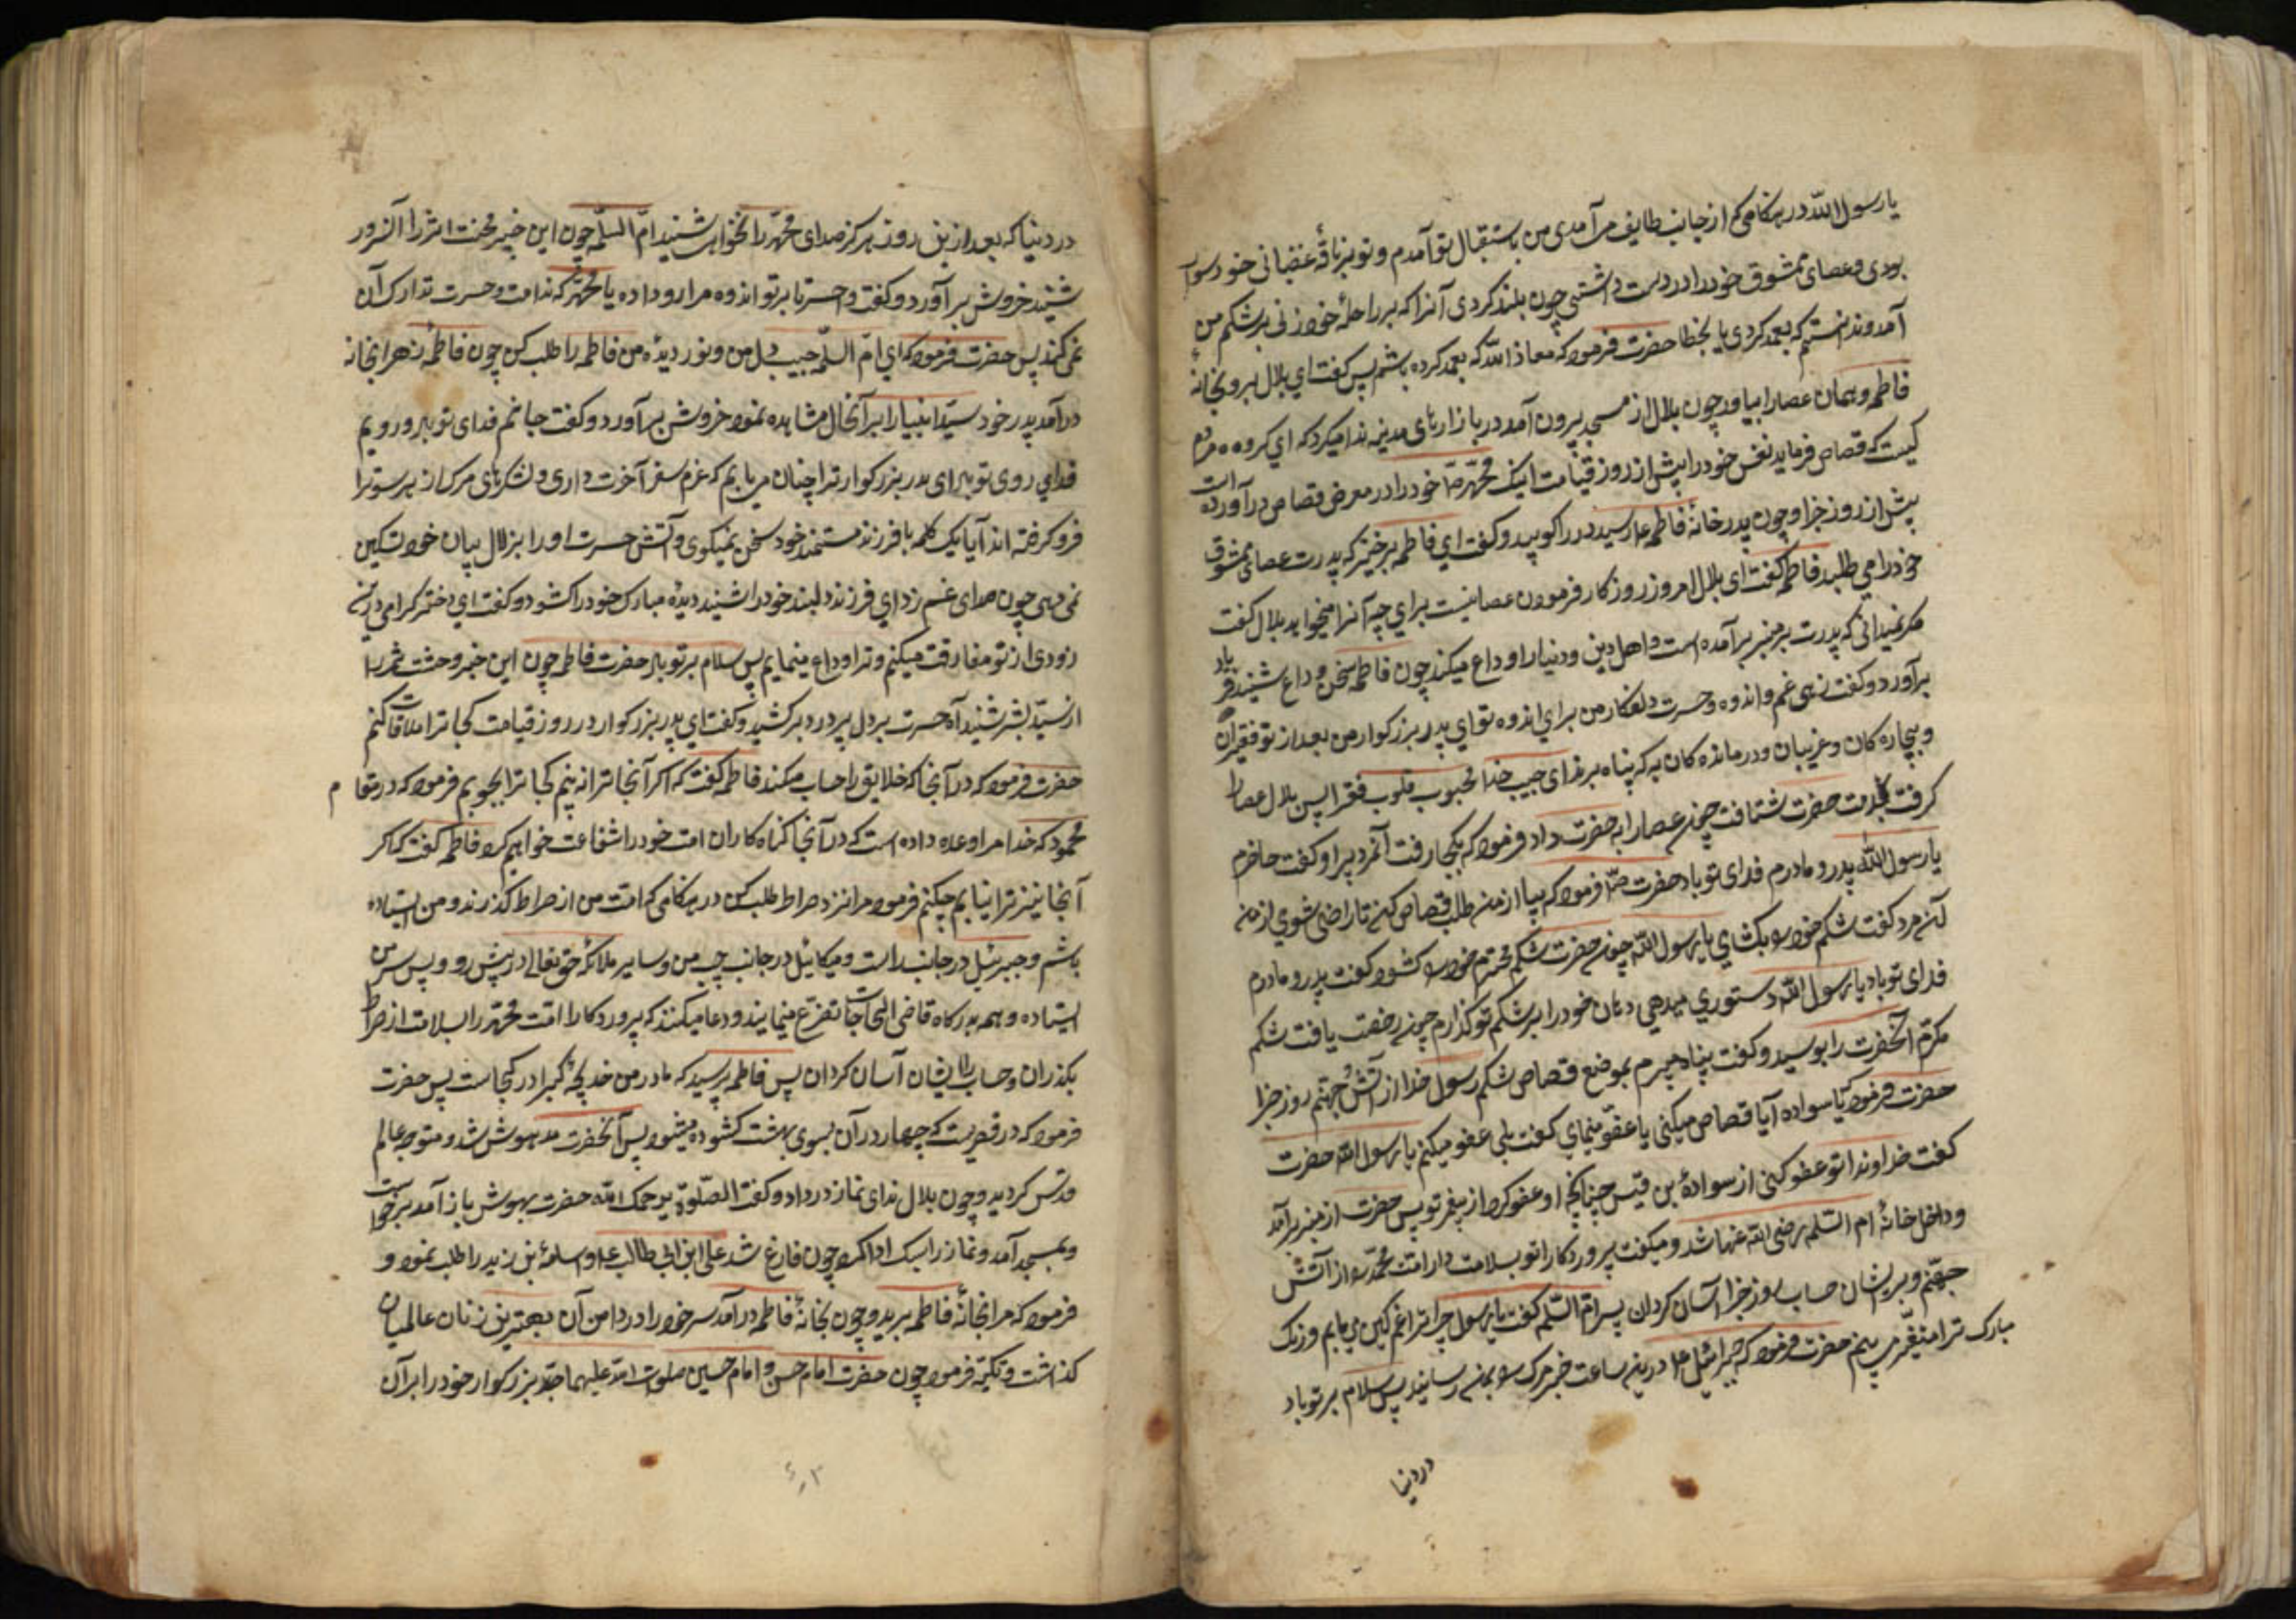 یا رسول الله در هنکامی که از جانب طایف می آمدی من باستقبال تو آمدم و تو بر ناقهٔ غضبانی خود سوار
بودی و عصای ممشوق خود را در دست داشتی چون بلند کردی آنرا که بر راحلهٔ خود زنی بر شکم من
آمد و ندانستم که بعمد کردی یا بخطا حضرت فرمود که معاذ الله که بعمد کرده باشم پس کفت ای بلال برو بخانهٔ
فاطمه و همان عصا را بیاور چون بلال از مسجد بیرون آمد در بازارهای مدینه ندا میکرد که ای کروه مردم
کیست که قصاص فرماید نفس خود را پیش از روز قیامت اینک محمد خود را در معرض قصاص در آورده است
پیش از روز جزا و چون بدر خانهٔ فاطمه رسید در را کوبید و کفت ای فاطمه برخیز که پدرت عصای ممشوق
خود را می طلبد فاطمه کفت ای بلال امروز روز کار فرمودن عصا نیست برای چه آنرا میخواهد بلال کفت
مکر نمیدانی که پدرت بر منبر برآمده است و اهل دین و دنیا را وداع میکند چون فاطمه سخن وداع شنید فریاد
برآورد و کفت زهی غم و اندوه و حسرت دلفکار من برای اندوه تو ای پدر بزرکوار من بعد از تو فقیران
و بیچاره کان و غریبان و درمانده کان به که پناه برند ای حبیب خدا محبوب قلوب فقرا پس بلال عصا را
کرفت بخدمت حضرت شتافت چون عصا را به حضرت داد فرمود که بکجا رفت آنمرد پیر او کفت حاضرم
یا رسول الله پدر و مادرم فدای تو باد حضرت فرمود که بیا از من طلب قصاص کن تا راضی شوی از من
آن مرد کفت شکم خود را بکشای یا رسول الله چون حضرت شکم محترم خود را کشود کفت پدر و مادرم
فدای تو باد یا رسول الله دستوری میدهی دهان خود را بر شکم تو کذارم چون رخصت یافت شکم
مکرم آنحضرت را بوسید و کفت پناه میبرم بموضع قصاص شکم رسول خدا از آتش جهنم روز جزا
حضرت فرمود که یا سواده آیا قصاص میکنی یا عفو مینمای کفت بلی عفو میکنم یا رسول الله حضرت
کفت خداوندا تو عفو کنی از سوادهٔ بن قیس چنانچه او عفو کرد از پیغمبر تو پس حضرت از منبر برآمد
و داخل خانهٔ ام السلمه رضی الله عنها شد و میکفت پروردکارا تو بسلامت دار امت محمد را از آتش
جهنم و بر ایشان حساب روز جزا آسان کردان پس ام السلمه کفت یا رسول چرا ترا غم کین می یابم و رنک
مبارک ترا متغیر می بینم حضرت فرمود که جبرائیل در ین ساعت خبر مرک را بمن رسانید پس سلام بر تو باد
در دنیا
در دنیا که بعد از ین روز هرکز صدای محمد را نخواهی شنید ام السلمه چون این خبر محنت اثر را از آن سرور
شنید خروش برآورد و کفت واحسرتا بر تو اندوه مرا رو داده یا محمد که ندامت و حسرت تدارک آن
نمی کند پس حضرت فرمود که ای ام السلمه حبیب دل من و نور دیدهٔ من فاطمه را طلب کن چون فاطمه زهرا بخانه
در آمد پدر خود سید انبیا را بر آنحال مشاهده نمود خروش برآورد و کفت جانم فدای تو باد و رویم
فدای روی تو باد ای پدر بزرکوار ترا چنان می یابم که عزم سفر آخرت داری و لشکرهای مرک از هر سو ترا
فرو کرفته اند آیا یک کلمه با فرزند مستمند خود سخن نمیکوی و آتش حسرت او را بزلال بیان خود تسکین
نمی دهی چون صدای غم زدای فرزند دلبند خود را شنید دیدهٔ مبارک خود را کشود و کفت ای دختر کرامی درین
زودی از تو مفارقت میکنم و ترا وداع مینمایم پس سلام بر تو باد حضرت فاطمه چون این خبر وحشت ثمر را
از سید بشر شنید آه حسرت بر دل پر درد بر کشید و کفت ای پدر بزرکوار در روز قیامت کجا ترا ملاقات کنم
حضرت فرمود که در آنجا که خلایق را حساب میکند فاطمه کفت که اکر آنجا ترا نه بینم کجا ترا بجویم فرمود که در مقام
محمود که خدا مرا وعده داده است که در آنجا کناه کاران امت خود را شفاعت خواهم کرد فاطمه کفت که اکر
آنجا نیز ترا نیابم چکنم فرمود مرا نزد صراط طلب کن در هنکامی که امت من از صراط کذرند و من ایستاده
باشم و جبرئیل در جانب راست و میکائیل در جانب چپ من و سایر ملائکهٔ حق تعالی در پیش رو و پس سر من
ایستاده و همه بدرکاه قاضی الحاجات تضرع مینمایند و دعا میکنند که پروردکارا امت محمد را بسلامت از صراط
بکذران و حساب را بر ایشان آسان کردان پس فاطمه پرسید که مادر من خدیجهٔ کبرا در کجاست پس حضرت
فرمود که در قصریست که چهار در آن بسوی بهشت کشوده میشود پس آنحضرت مدهوش شد و متوجه عالم
قدس کردید و چون بلال ندای نماز در داد و کفت الصلوة یرحمک الله حضرت بهوش باز آمد برخواست
و بمسجد آمد و نماز را سبک ادا کرد چون فارغ شد علی ابن ابی طالب و اسامهٔ بن زید را طلب نمود و
فرمود که مرا بخانهٔ فاطمه برید و چون بخانهٔ فاطمه در آمد سر خود را در دامن آن بهترین زنان عالمیان
کذاشت و تکیه فرمود چون حضرت امام حسن و امام حسین صلوات الله علیهما جد بزرکوار خود را بر آن